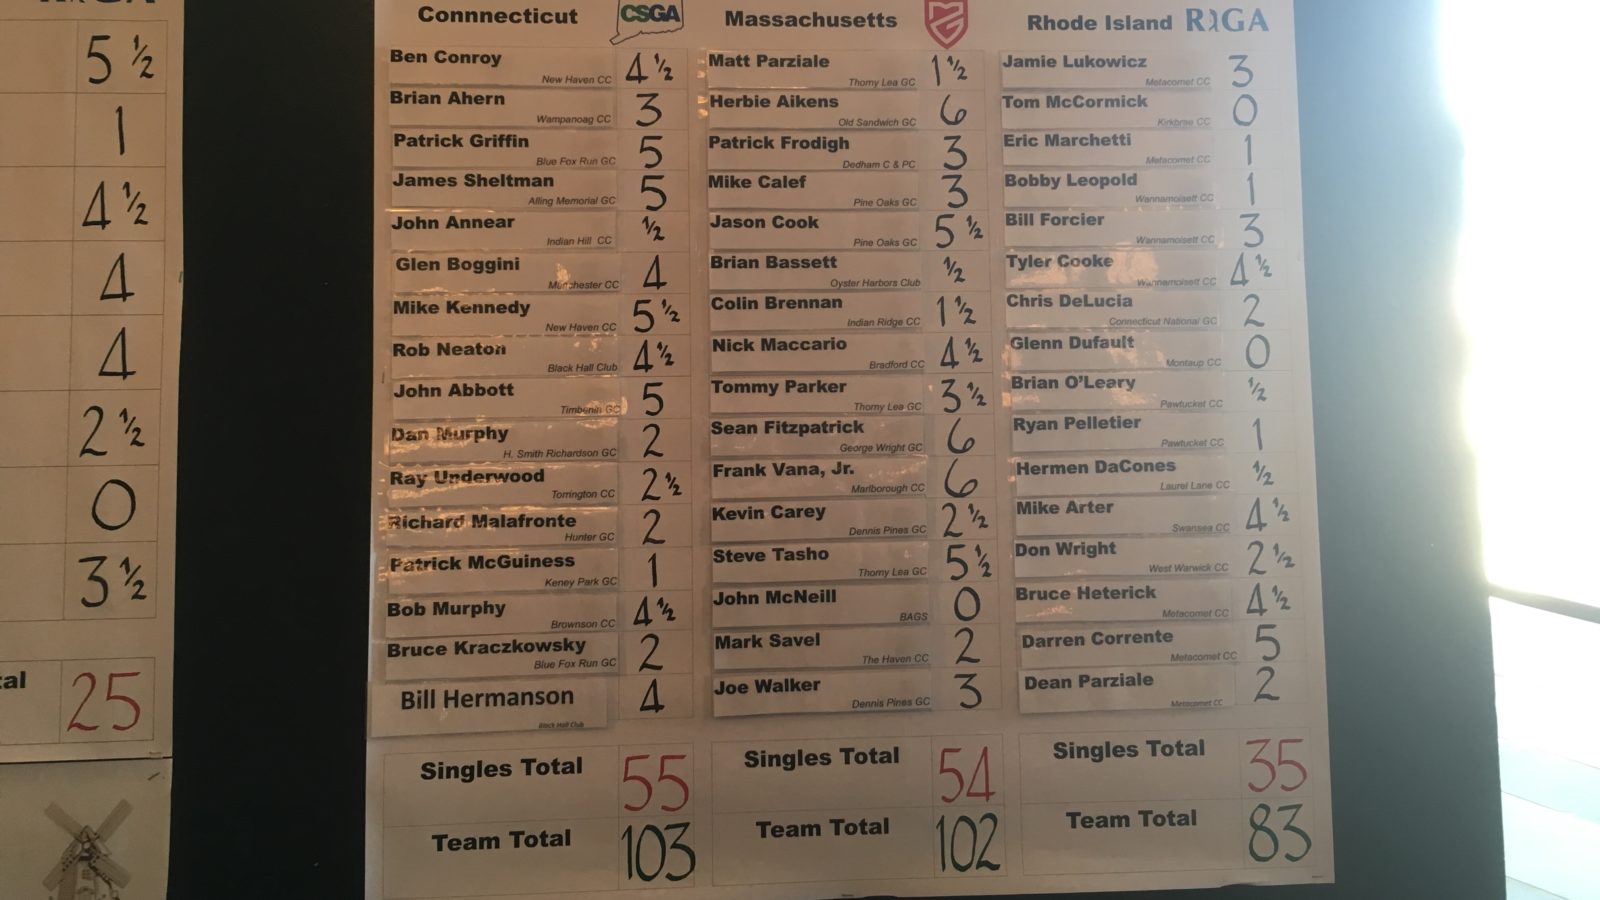 5 ½
1
4 ½
4
4
2 ½
0
3 ½
25
Connnecticut CSGA
Ben Conroy New Haven CC 4 ½
Brian Ahern Wampanoag CC 3
Patrick Griffin Blue Fox Run GC 5
James Sheltman Alling Memorial GC 5
John Annear Indian Hill CC ½
Glen Boggini Manchester CC 4
Mike Kennedy New Haven CC 5 ½
Rob Neaton Black Hall Club 4 ½
John Abbott Timberlin GC 5
Dan Murphy H. Smith Richardson GC 2
Ray Underwood Torrington CC 2 ½
Richard Malafronte Hunter GC 2
Patrick McGuiness Keney Park GC 1
Bob Murphy Brownson CC 4 ½
Bruce Kraczkowsky Blue Fox Run GC 2
Bill Hermanson Black Hall Club 4
Singles Total 55
Team Total 103
Massachusetts
Matt Parziale Thorny Lea GC 1 ½
Herbie Aikens Old Sandwich GC 6
Patrick Frodigh Dedham C & PC 3
Mike Calef Pine Oaks GC 3
Jason Cook Pine Oaks GC 5 ½
Brian Bassett Oyster Harbors Club ½
Colin Brennan Indian Ridge CC 1 ½
Nick Maccario Bradford CC 4 ½
Tommy Parker Thorny Lea GC 3 ½
Sean Fitzpatrick George Wright GC 6
Frank Vana, Jr. Marlborough CC 6
Kevin Carey Dennis Pines GC 2 ½
Steve Tasho Thorny Lea GC 5 ½
John McNeill BAGS 0
Mark Savel The Haven CC 2
Joe Walker Dennis Pines GC 3
Singles Total 54
Team Total 102
Rhode Island RIGA
Jamie Lukowicz Metacomet CC 3
Tom McCormick Kirkbrae CC 0
Eric Marchetti Metacomet CC 1
Bobby Leopold Wannamoisett CC 1
Bill Forcier Wannamoisett CC 3
Tyler Cooke Wannamoisett CC 4 ½
Chris DeLucia Connecticut National GC 2
Glenn Dufault Montaup CC 0
Brian O'Leary Pawtucket CC ½
Ryan Pelletier Pawtucket CC 1
Hermen DaCones Laurel Lane CC ½
Mike Arter Swansea CC 4 ½
Don Wright West Warwick CC 2 ½
Bruce Heterick Metacomet CC 4 ½
Darren Corrente Metacomet CC 5
Dean Parziale Metacomet CC 2
Singles Total 35
Team Total 83